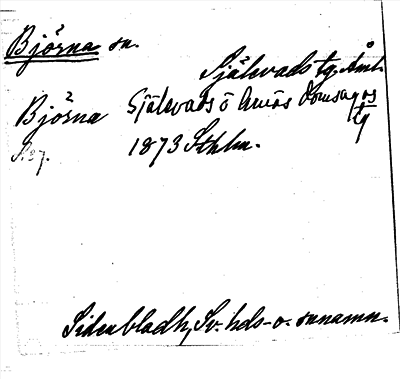 Björna sn.
Själevads tg. Ånl.
Björna Själevads o Arnäs domsagos tg
1873 Sthlm.
Sidenbladh, Sv. hds- o. snnamn.